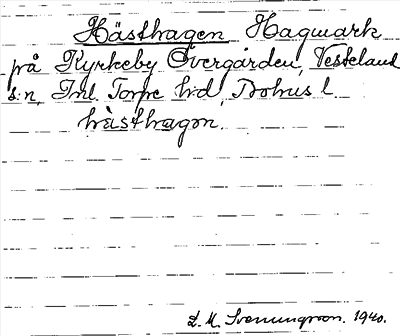 Hästhagen Hagmark
på Kyrkeby Övergården, Vesteland
s:n, Inl. Torpe h:d, Bohus l.
hästhagon.
D. M. Svenungsson. 1940.